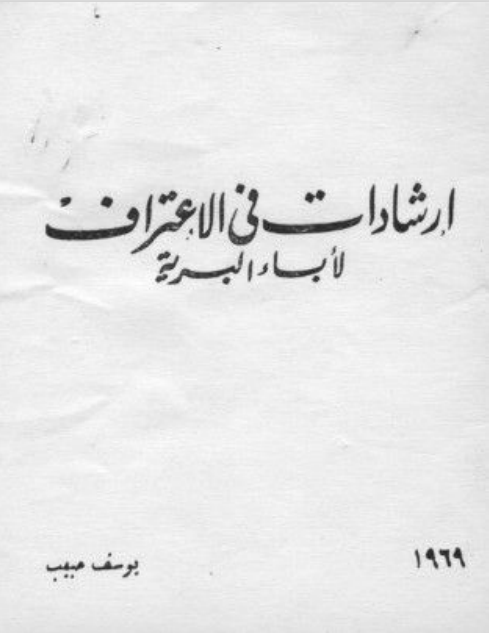 إرشادات في الاعتراف
لأباء البرية
١٩٦٩
يوسف حبيب